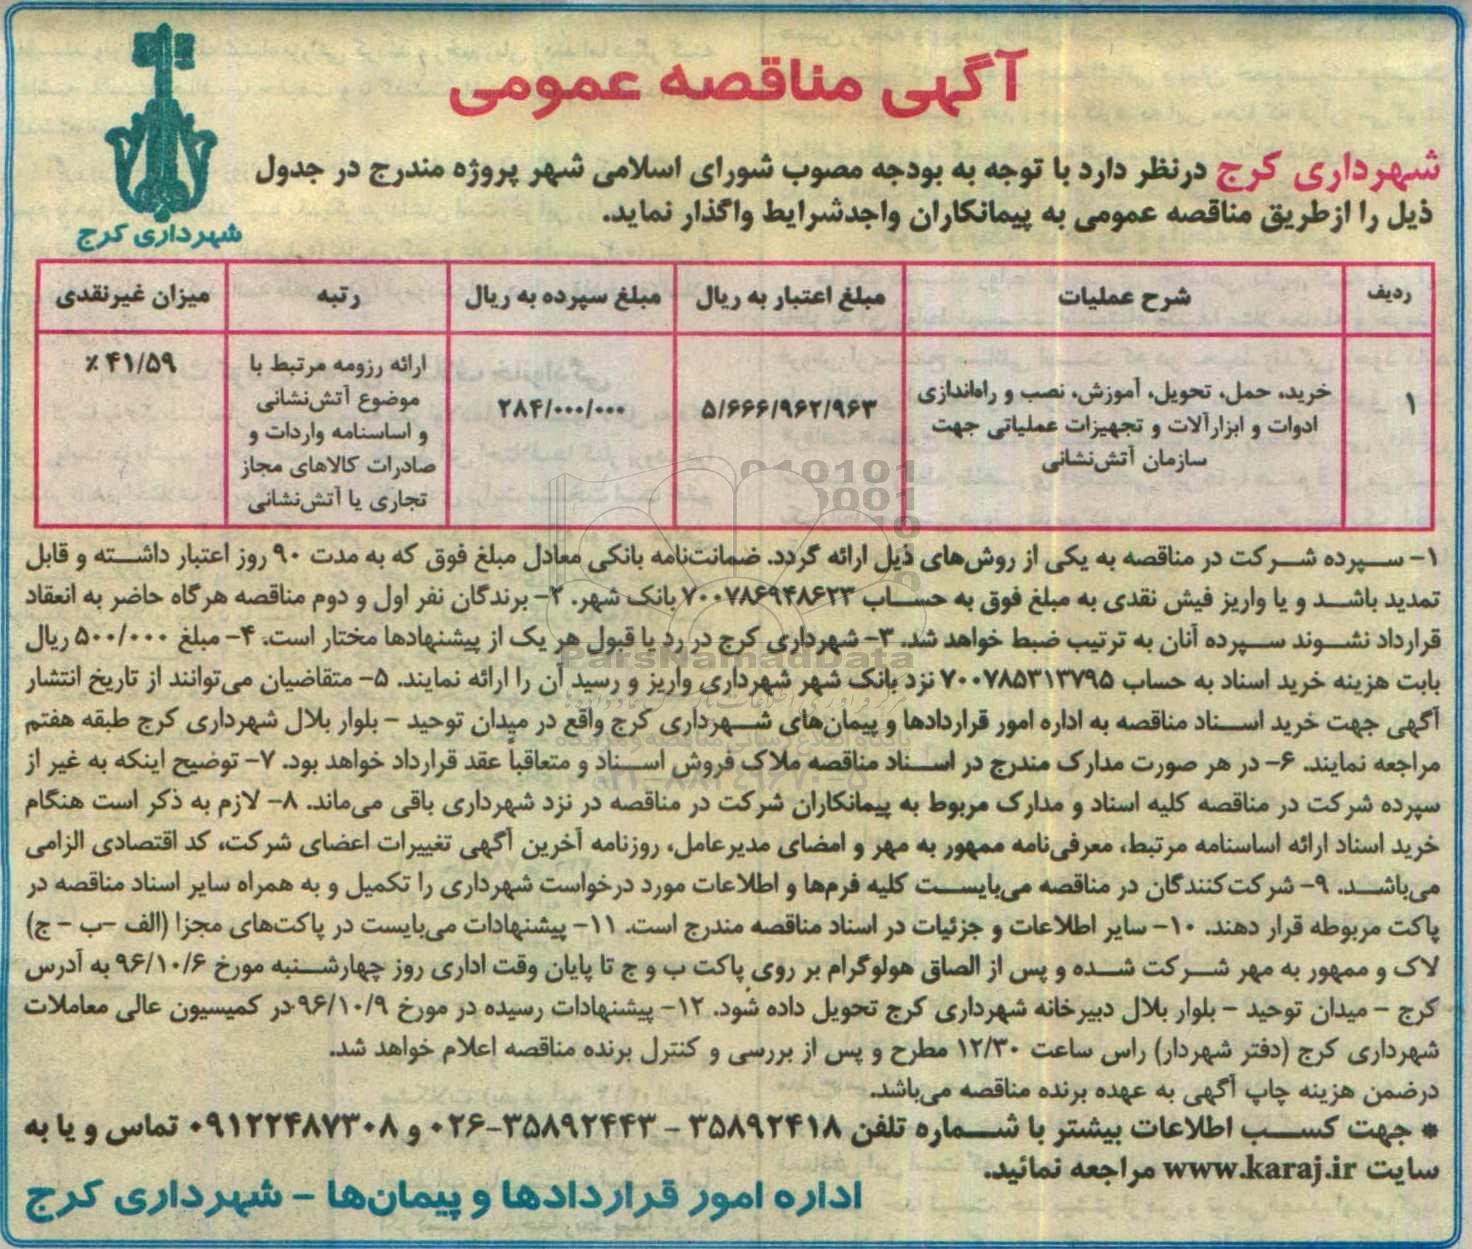 آگهی مناقصه عمومی
شهرداری کرج
شهرداری کرج درنظر دارد با توجه به بودجه مصوب شورای اسلامی شهر پروژه مندرج در جدول
ذیل را ازطریق مناقصه عمومی به پیمانکاران واجدشرایط واگذار نماید.
ردیف
شرح عملیات
مبلغ اعتبار به ریال
مبلغ سپرده به ریال
رتبه
میزان غیرنقدی
۱
خرید، حمل، تحویل، آموزش، نصب و راه‌اندازی
ادوات و ابزارآلات و تجهیزات عملیاتی جهت
سازمان آتش‌نشانی
۵/۶۶۶/۹۶۲/۹۶۳
۲۸۴/۰۰۰/۰۰۰
ارائه رزومه مرتبط با
موضوع آتش‌نشانی
و اساسنامه واردات و
صادرات کالاهای مجاز
تجاری یا آتش‌نشانی
۴۱/۵۹ ٪
۱- سپرده شرکت در مناقصه به یکی از روش‌های ذیل ارائه گردد. ضمانت‌نامه بانکی معادل مبلغ فوق که به مدت ۹۰ روز اعتبار داشته و قابل
تمدید باشد و یا واریز فیش نقدی به مبلغ فوق به حساب ۷۰۰۷۸۶۹۴۸۶۲۳ بانک شهر. ۲- برندگان نفر اول و دوم مناقصه هرگاه حاضر به انعقاد
قرارداد نشوند سپرده آنان به ترتیب ضبط خواهد شد. ۳- شهرداری کرج در رد یا قبول هر یک از پیشنهادها مختار است. ۴- مبلغ ۵۰۰/۰۰۰ ریال
بابت هزینه خرید اسناد به حساب ۷۰۰۷۸۵۳۱۳۷۹۵ نزد بانک شهر شهرداری واریز و رسید آن را ارائه نمایند. ۵- متقاضیان می‌توانند از تاریخ انتشار
آگهی جهت خرید اسناد مناقصه به اداره امور قراردادها و پیمان‌های شهرداری کرج واقع در میدان توحید - بلوار بلال شهرداری کرج طبقه هفتم
مراجعه نمایند. ۶- در هر صورت مدارک مندرج در اسناد مناقصه ملاک فروش اسناد و متعاقباً عقد قرارداد خواهد بود. ۷- توضیح اینکه به غیر از
سپرده شرکت در مناقصه کلیه اسناد و مدارک مربوط به پیمانکاران شرکت در مناقصه در نزد شهرداری باقی می‌ماند. ۸- لازم به ذکر است هنگام
خرید اسناد ارائه اساسنامه مرتبط، معرفی‌نامه ممهور به مهر و امضای مدیرعامل، روزنامه آخرین آگهی تغییرات اعضای شرکت، کد اقتصادی الزامی
می‌باشد. ۹- شرکت‌کنندگان در مناقصه می‌بایست کلیه فرم‌ها و اطلاعات مورد درخواست شهرداری را تکمیل و به همراه سایر اسناد مناقصه در
پاکت مربوطه قرار دهند. ۱۰- سایر اطلاعات و جزئیات در اسناد مناقصه مندرج است. ۱۱- پیشنهادات می‌بایست در پاکت‌های مجزا (الف -ب - ج)
لاک و ممهور به مهر شرکت شده و پس از الصاق هولوگرام بر روی پاکت ب و ج تا پایان وقت اداری روز چهارشنبه مورخ ۹۶/۱۰/۶ به آدرس
کرج - میدان توحید - بلوار بلال دبیرخانه شهرداری کرج تحویل داده شود. ۱۲- پیشنهادات رسیده در مورخ ۹۶/۱۰/۹ در کمیسیون عالی معاملات
شهرداری کرج (دفتر شهردار) راس ساعت ۱۲/۳۰ مطرح و پس از بررسی و کنترل برنده مناقصه اعلام خواهد شد.
درضمن هزینه چاپ آگهی به عهده برنده مناقصه می‌باشد.
* جهت کسب اطلاعات بیشتر با شماره تلفن ۳۵۸۹۲۴۱۸ - ۳۵۸۹۲۴۴۳-۰۲۶ و ۰۹۱۲۲۴۸۷۳۰۸ تماس و یا به
سایت www.karaj.ir مراجعه نمائید.
اداره امور قراردادها و پیمان‌ها - شهرداری کرج
ParsNamadData